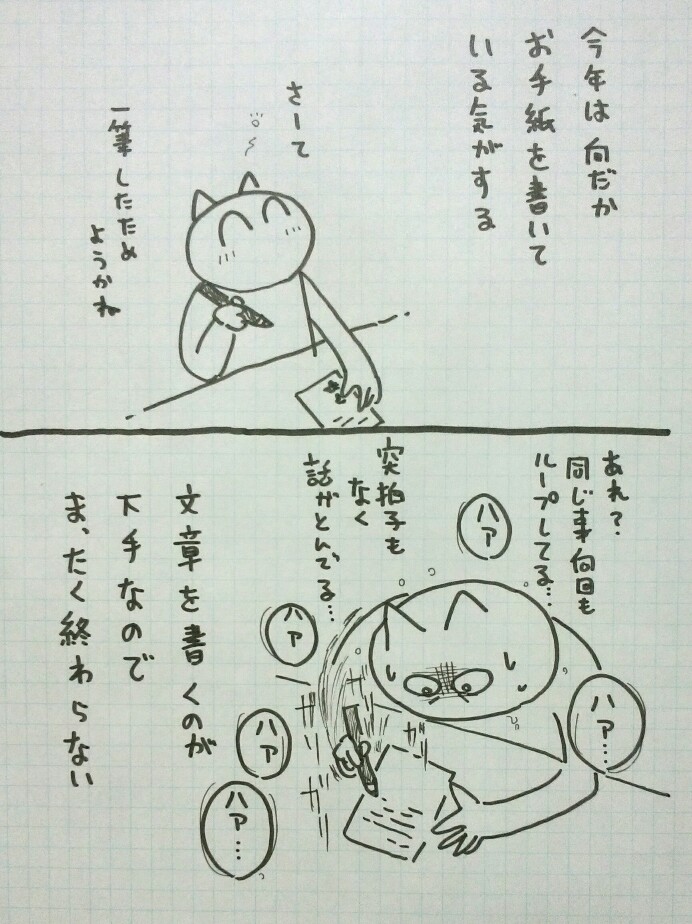 今年は何だか
お手紙を書いて
いる気がする
さーて
一筆したため
ようかね
あれ?
同じ事何回も
ループしてる…
突拍子も
なく
話がとんでる…
ハァ
ハァ
ハァ…
ハァ
ハァ…
ガガガ
ガガ
文章を書くのが
下手なので
まったく終わらない